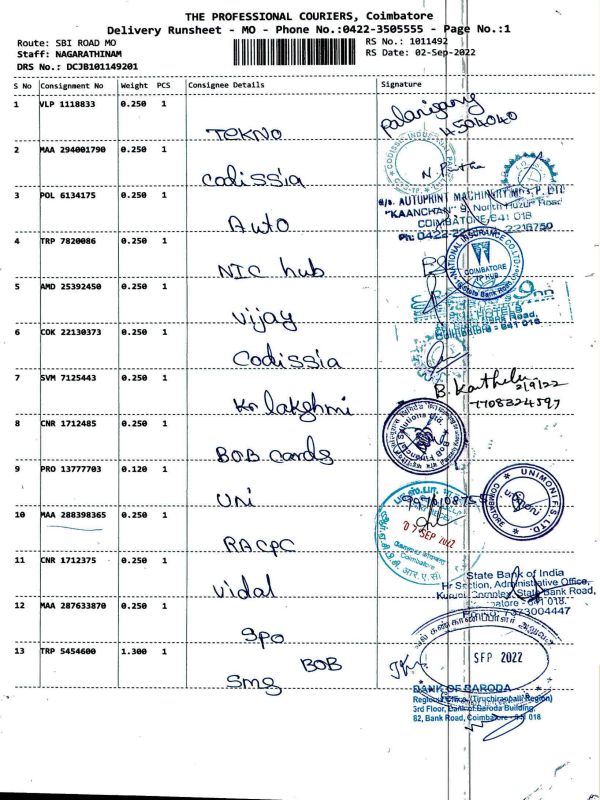 THE PROFESSIONAL COURIERS, Coimbatore
Delivery Runsheet - MO - Phone No.:0422-3505555 - Page No.:1
Route: SBI ROAD MO
RS No.: 1011492
Staff: NAGARATHINAM
RS Date: 02-Sep-2022
DRS No.: DCJB101149201
S No Consignment No Weight PCS Consignee Details Signature
1 VLP 1118833 0.250 1
Tekno
Palanisamy
4504040
2 MAA 294001790 0.250 1
Codissia
3 POL 6134175 0.250 1
Auto
AUTOPRINT MACHINERY MFRS. P. LTD
"KAANCHAN" 9, North Huzur Road
COIMBATORE 641 018
4 TRP 7820086 0.250 1
NIC hub
NATIONAL INSURANCE CO. LTD.
COIMBATORE
TP HUB
State Bank Road
5 AMD 25392450 0.250 1
Vijay
Coimbatore - 641 018.
6 COK 22130373 0.250 1
Codissia
7 SVM 7125443 0.250 1
Kr lakshmi
2/9/22
7708324597
8 CNR 1712485 0.250 1
BOB Cards
BOB Financial Solutions Ltd.
9 PRO 13777703 0.120 1
Uni
UNIMONI F.S. LTD.
COIMBATORE
10 MAA 288398365 0.250 1
RACPC
SEP 2022
Coimbatore
11 CNR 1712375 0.250 1
Vidal
State Bank of India
Hr Section, Administrative Office,
State Bank Road,
12 MAA 287633870 0.250 1
Spo
13 TRP 5454600 1.300 1
BOB
Smg
SEP 2022
BANK OF BARODA
Regional Office, (Tiruchirappalli Region)
3rd Floor, Bank of Baroda Building,
82, Bank Road, Coimbatore - 641 018